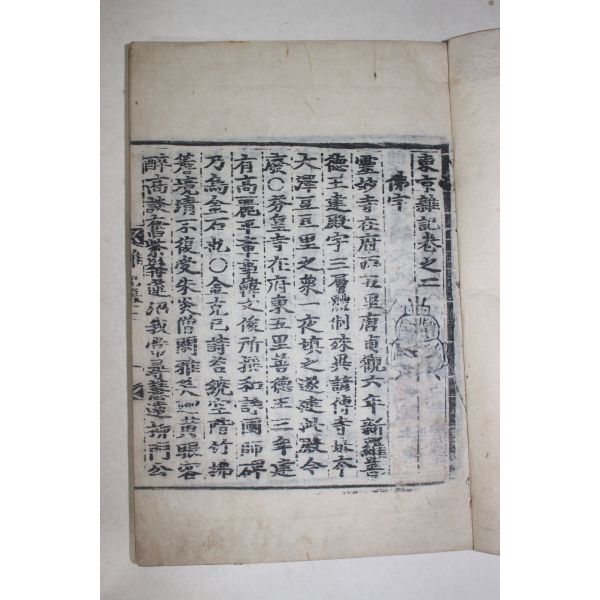 東京雜記卷之二
佛宇
靈妙寺在府西五里唐貞觀六年新羅善
德王建殿宇三層體制殊異諺傳寺址本
大澤豆豆里之衆一夜塡之遂建此殿今
廢○芬皇寺在府東五里善德王三年建
有高麗平章事韓文俊所撰和諍國師碑
乃烏金石也○金克己詩苔錢空階竹拂
簷境淸不復受朱炎僧閑雅黃眼客
醉高談奮紫髥邂我常尋慧遠指門公